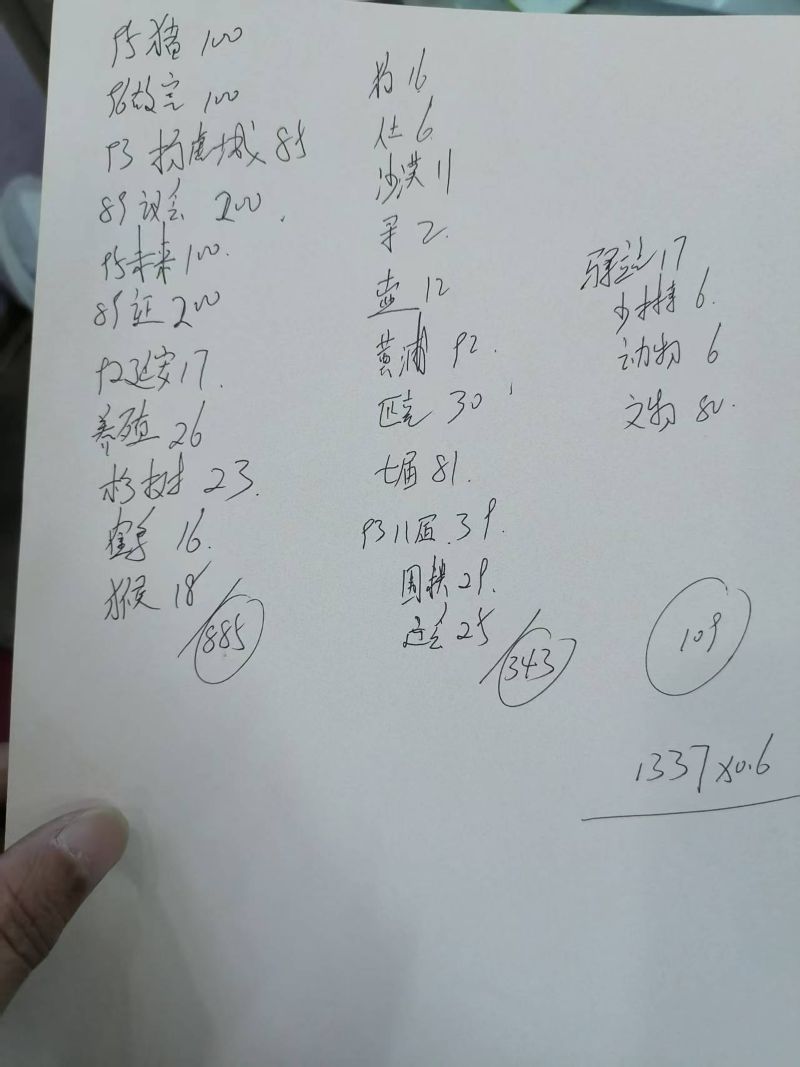 95猪 100
96故宫 100
93杨虎城 85
89议会 200
95未来 100
89证 200
92延安 17
养殖 26
杉树 23
鹤 16
猴 18
885
16
仕 6
沙漠 11
2
壶 12
黄浦 92
匹克 30
七届 81
93八届 39
围棋 29
运会 25
343
17
少林 6
动物 6
文物 80
109
1337×0.6